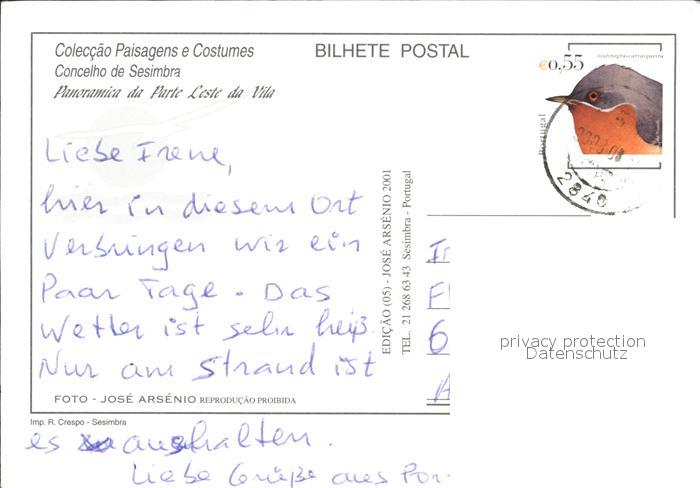 Colecção Paisagens e Costumes
Concelho de Sesimbra
Panoramica da Parte Leste da Vila
BILHETE POSTAL
€0,55
Portugal
2840
Liebe Irene,
hier in diesem Ort
verbringen wir ein
Paar Tage. Das
Wetter ist sehr heiß.
Nur am Strand ist
es auszuhalten.
Liebe Grüße aus Por-
EDIÇÃO (05) - JOSÉ ARSÉNIO 2001
TEL. 21 268 63 43 Sesimbra - Portugal
FOTO - JOSÉ ARSÉNIO REPRODUÇÃO PROIBIDA
Imp. R. Crespo - Sesimbra
6
privacy protection
Datenschutz